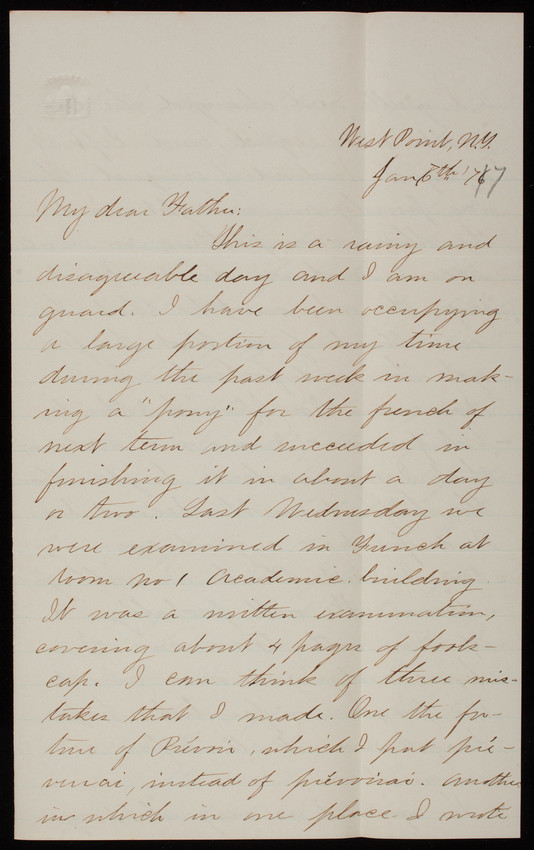 West Point, N.Y.
Jan 7th '77
My dear Father:
This is a rainy and
disagreeable day and I am on
guard. I have been occupying
a large portion of my time
during the past week in mak-
ing a "pony" for the french of
next term and succeeded in
finishing it in about a day
or two. Last Wednesday we
were examined in French at
room no 1 Academic building.
It was a written examination,
covering about 4 pages of fools-
cap. I can think of three mis-
takes that I made. One the fu-
ture of Prévoir, which I put pré-
verrai, instead of prévoirai. Another
in which in one place I wrote